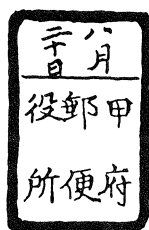 八月
二十日
甲府
郵便
役所